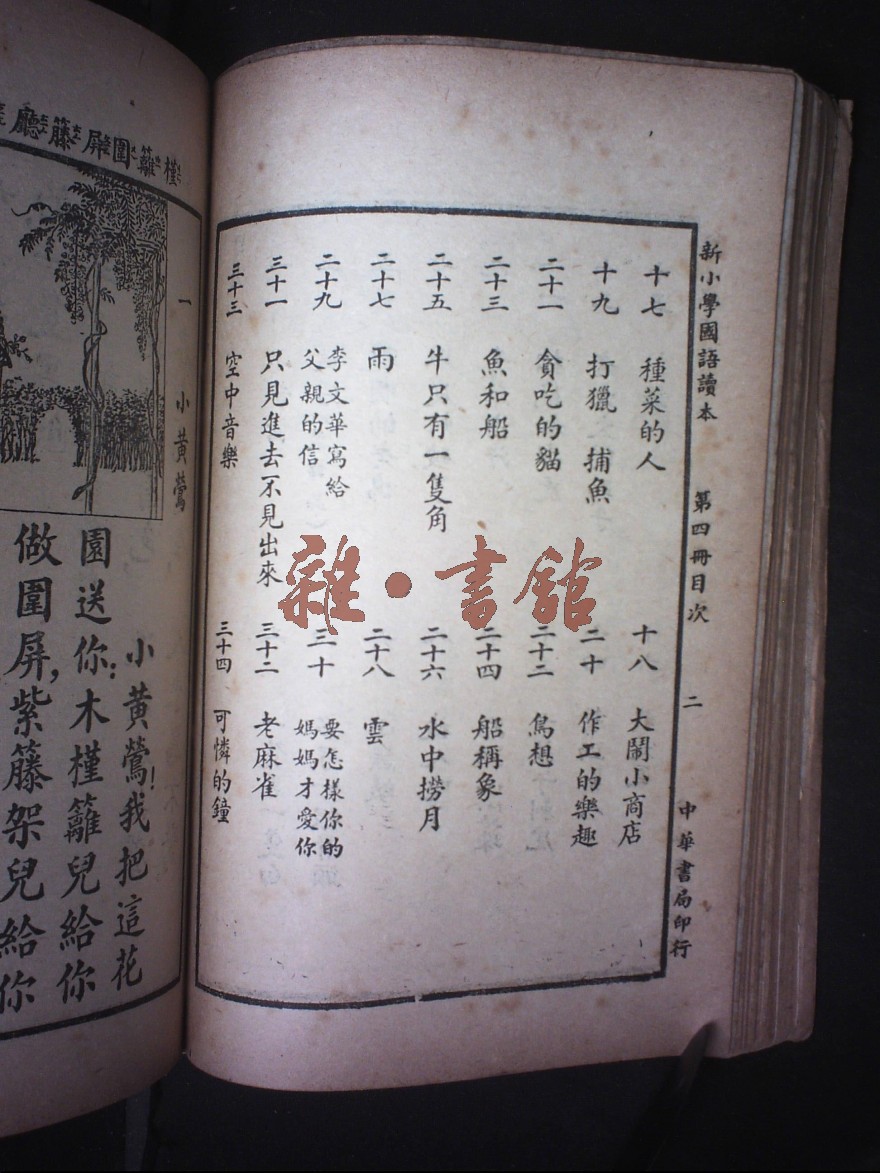 新小學國語讀本 第四冊目次 二 中華書局印行
十七 種菜的人
十八 大鬧小商店
十九 打獵 捕魚
二十 作工的樂趣
二十一 貪吃的貓
二十二 鳥想
二十三 魚和船
二十四 船稱象
二十五 牛只有一隻角
二十六 水中撈月
二十七 雨
二十八 雲
二十九 李文華寫給
父親的信
三十 要怎樣你的
媽媽才愛你
三十一 只見進去不見出來
三十二 老麻雀
三十三 空中音樂
三十四 可憐的鐘
雜·書館
槿籬圍屏籐廳
一 小黃鶯
小黃鶯!我把這花
園送你:木槿籬兒給你
做圍屏,紫籐架兒給你